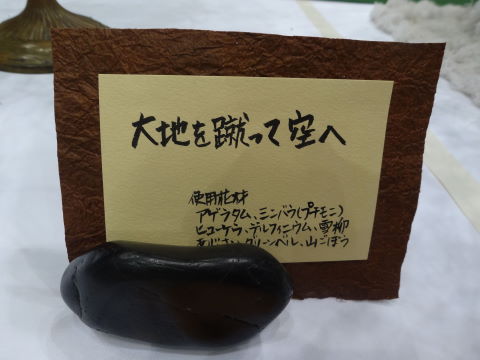 大地を蹴って空へ
使用花材
アゲラタム、ミンバウ(プチモニ)
ヒューケラ、デルフィニウム、雪柳
あじさい、グリーンベル、山ごぼう